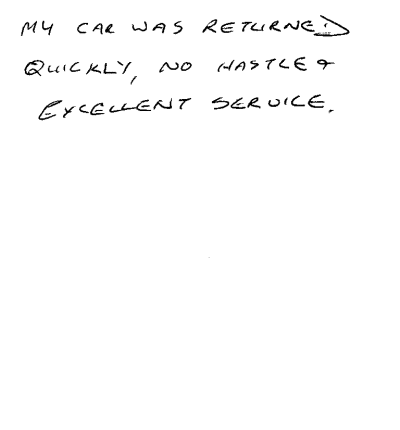 MY CAR WAS RETURNED
QUICKLY, NO HASTLE &
EXCELLENT SERVICE.